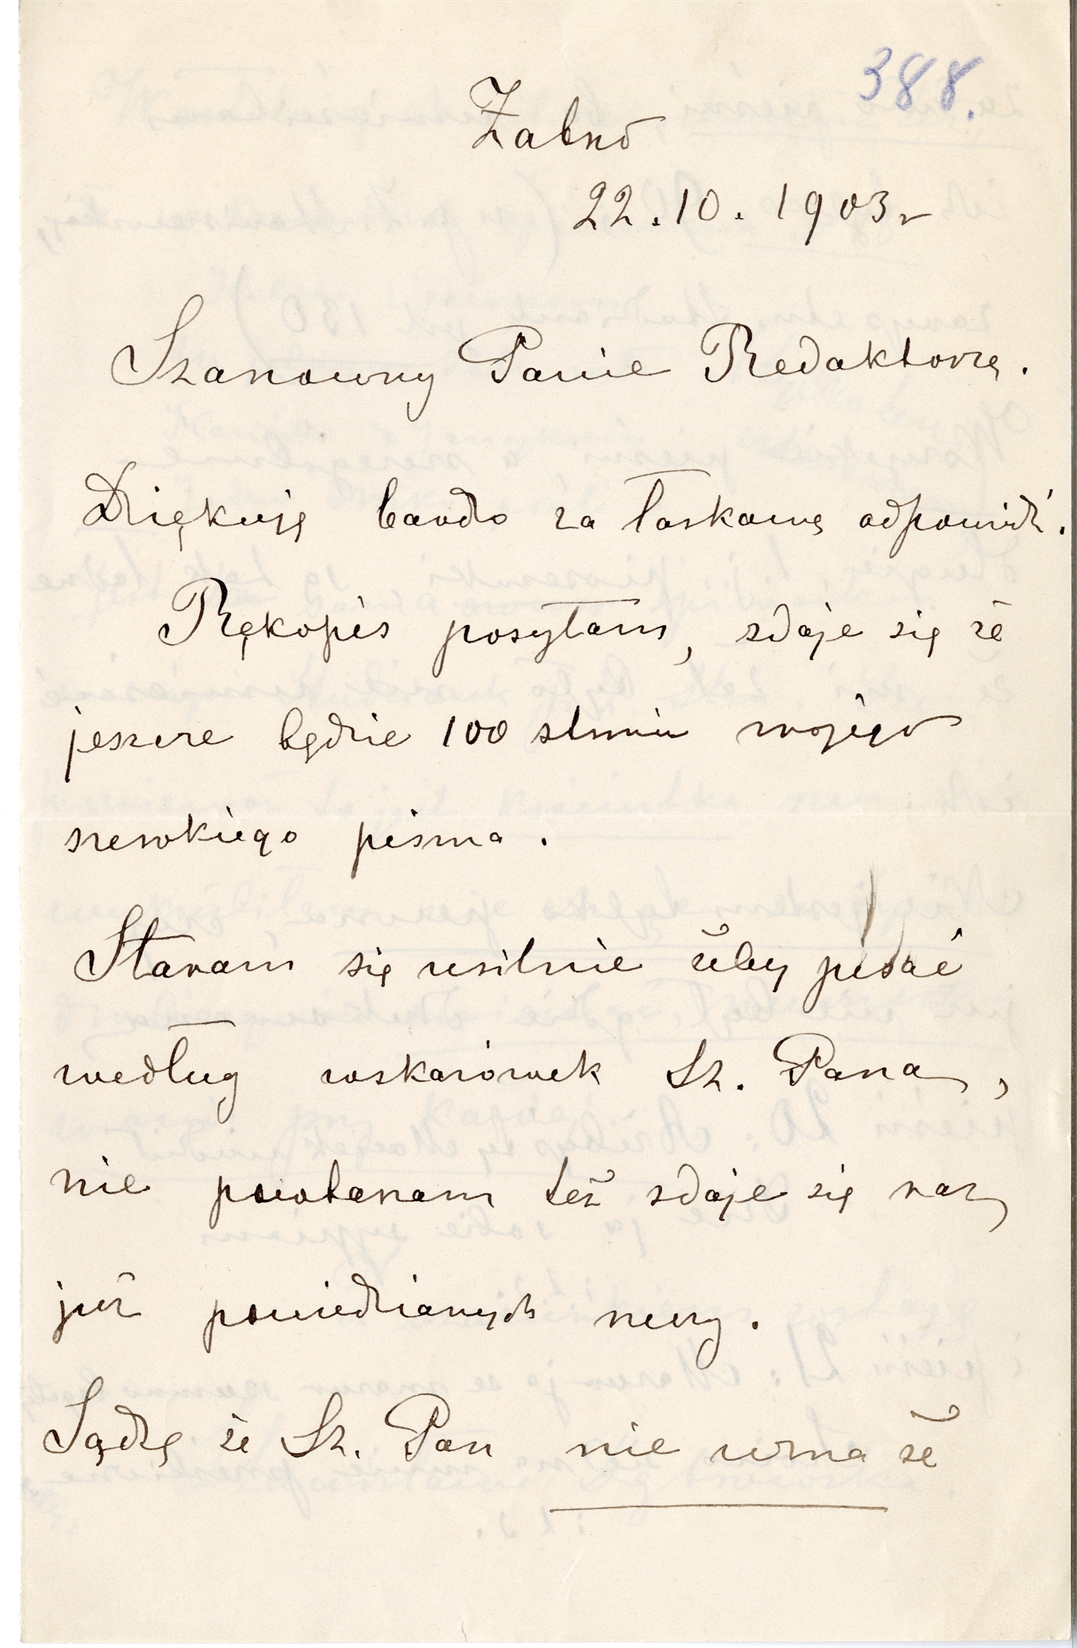 388.
Żabno
22.10.1903 r
Szanowny Panie Redaktorze.
Dziękuję bardzo za łaskawą odpowiedź.
Rękopis posyłam, zdaje się że
jeszcze będzie 100 stronic mojego
szerokiego pisma.
Staram się usilnie żeby pisać
według wskazówek Sz. Pana,
nie powtarzam też zdaje się raz
już powiedzianych rzeczy.
Sądzę że Sz. Pan nie uzna że